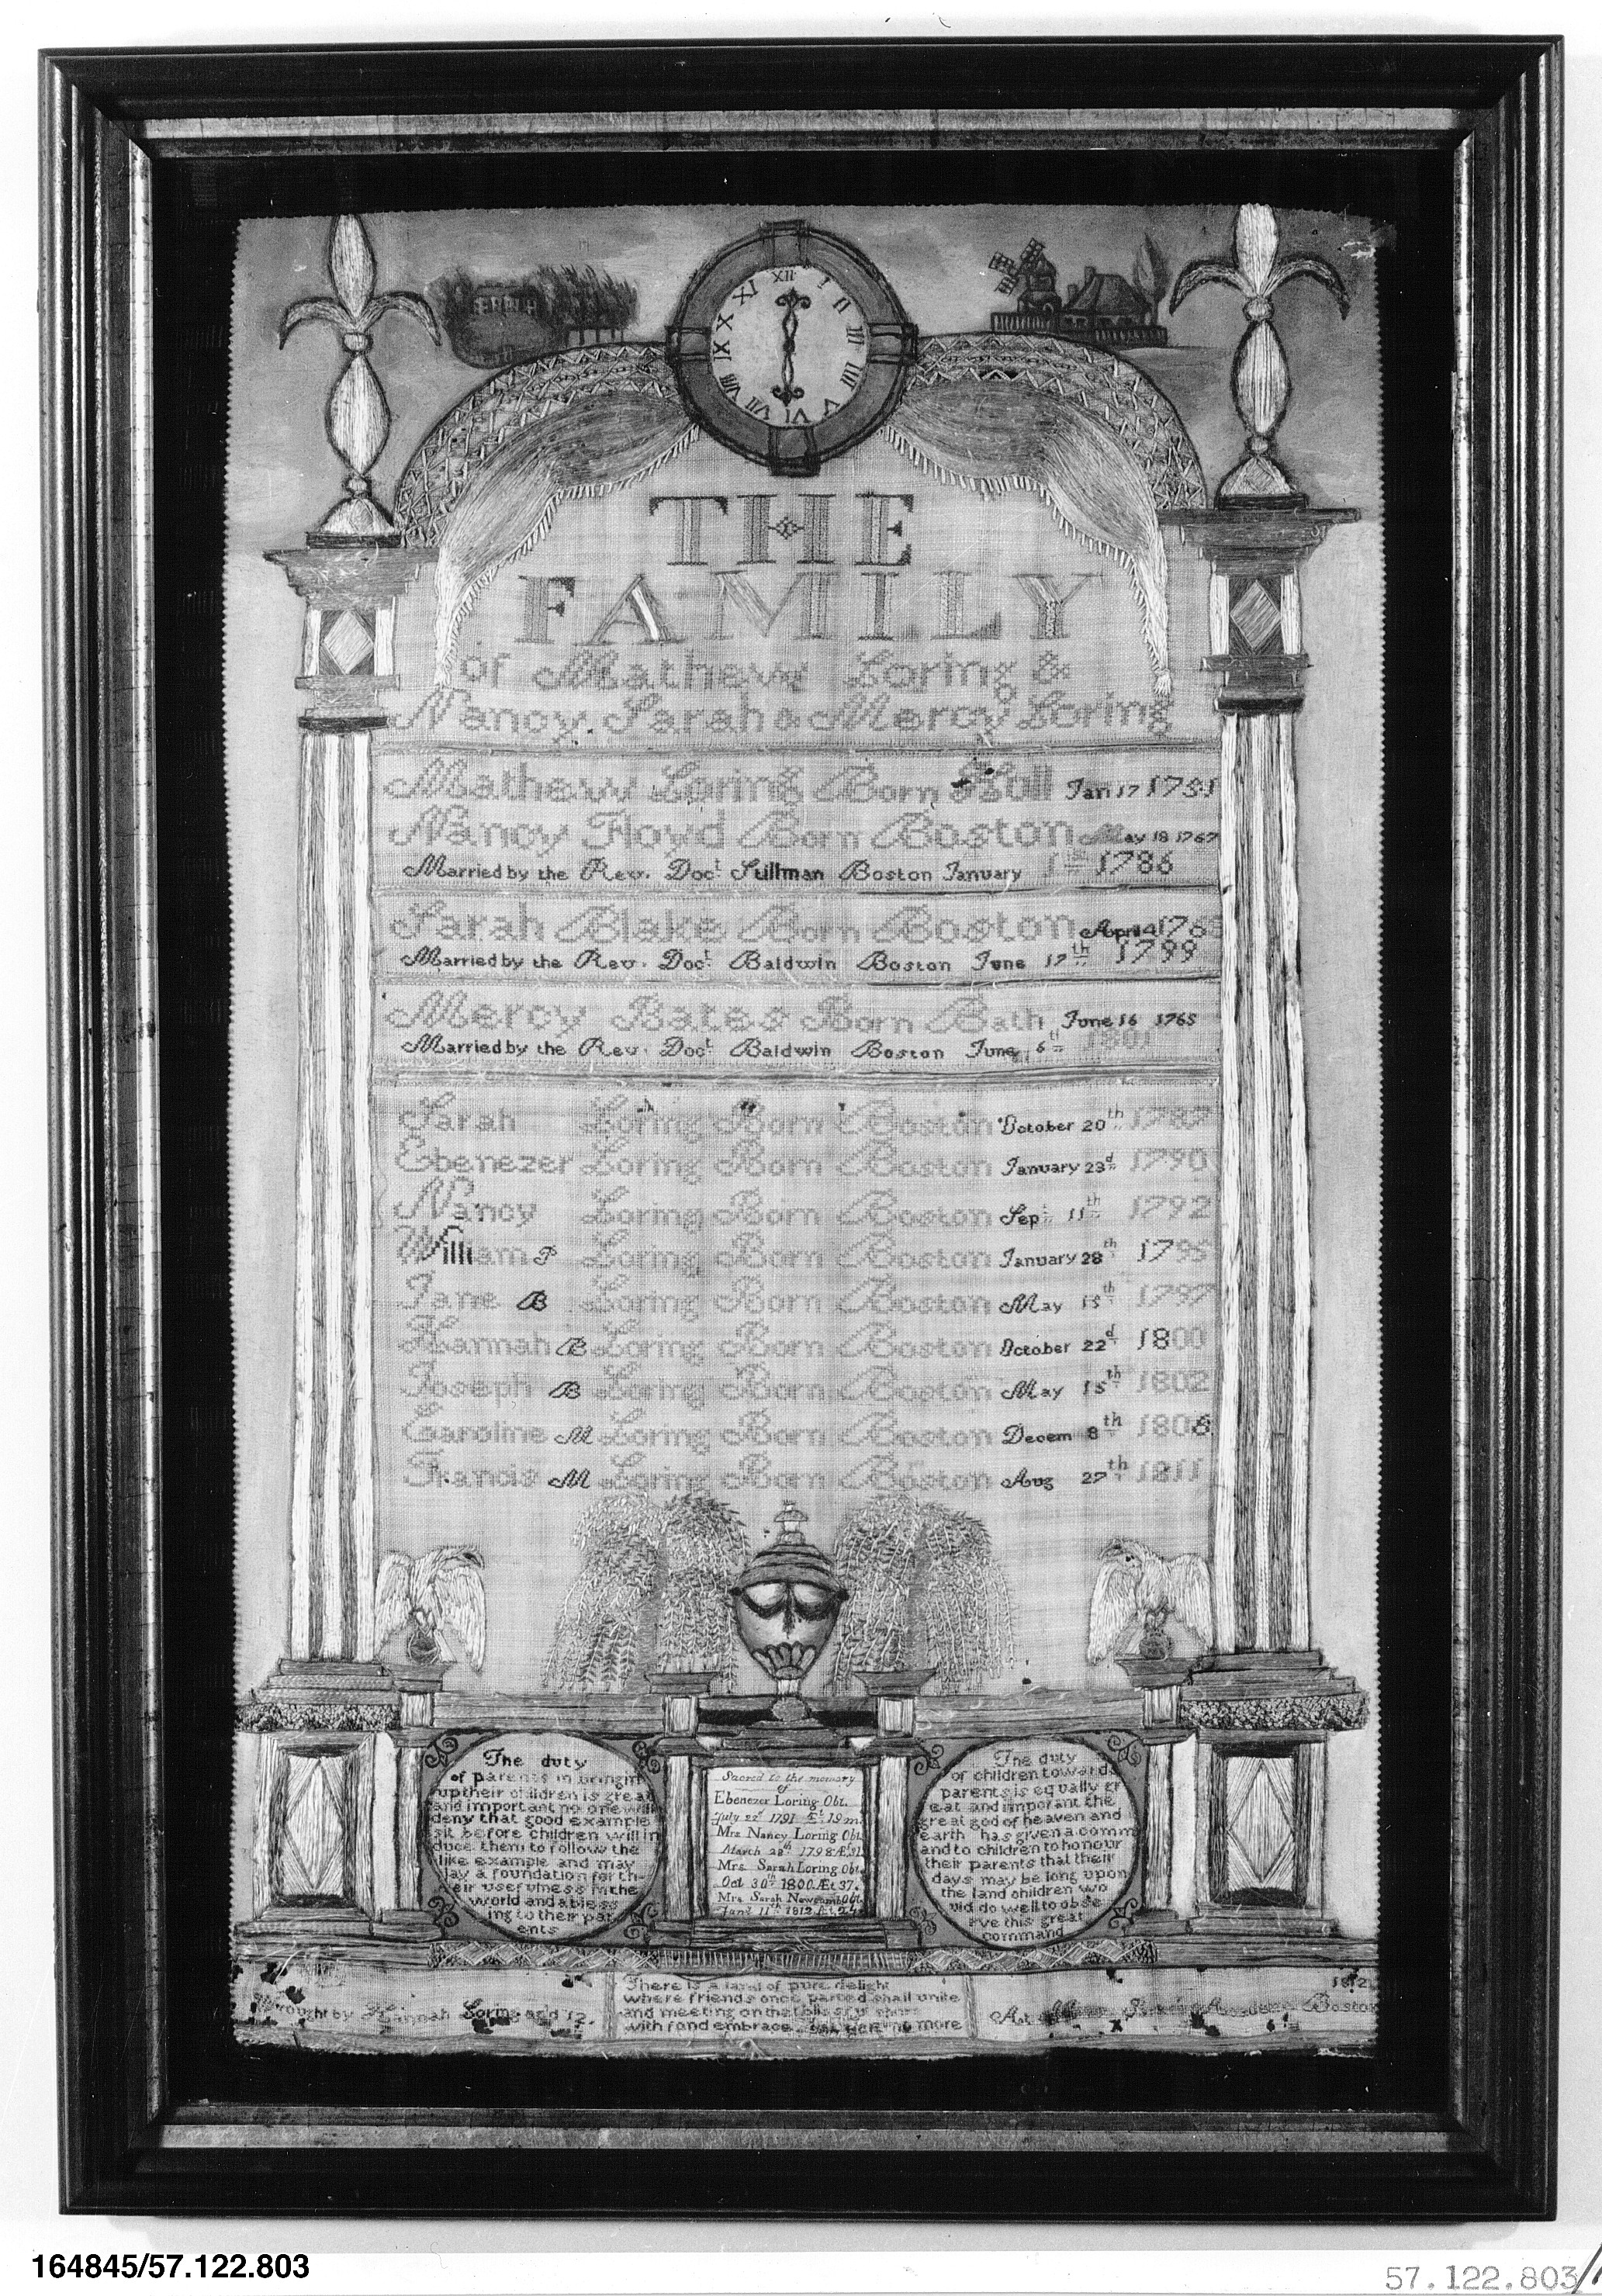 XII I II III IIII V VI VII VIII IX X XI
THE
FAMILY
of Mathew Loring &
Nancy. Sarah & Mercy Loring
Mathew Loring Born Hull Jan 17 1751
Nancy Floyd Born Boston May 18 1767
Married by the Rev. Doct Stillman Boston January 1 1786
Sarah Blake Born Boston April 4 1763
Married by the Rev. Doct Baldwin Boston June 17th 1799
Mercy Bates Born Bath June 16 1765
Married by the Rev. Doct Baldwin Boston June 6th 1801
Sarah Loring Born Boston October 20th 1787
Ebenezer Loring Born Boston January 23d 1790
Nancy Loring Born Boston Sept 11th 1792
William P Loring Born Boston January 28th 1795
Jane B Loring Born Boston May 15th 1797
Hannah B Loring Born Boston October 22d 1800
Joseph B Loring Born Boston May 15th 1802
Caroline M Loring Born Boston Decem 8th 1806
Francis M Loring Born Boston Aug 27th 1811
The duty
of parents in bringin
up their children is great
and important no one will
deny that good example
sit before children will in
duce them to follow the
like example and may
lay a foundation for th
eir usefulness in the
world and a bless
ing to their par
ents
Sacred to the memory
of
Ebenezer Loring Obt.
July 22d 1791 Æt 19 m.
Mrs Nancy Loring Obt
March 28th 1798 Æ 31
Mrs. Sarah Loring Obt.
Oct 30th 1800 Æt 37.
Mrs Sarah Newcomb Obt
Jant 11th 1812 Æt 24
The duty
of children towards
parents is equally gr
eat and imporant the
great god of heaven and
earth has given a comm
and to children to honour
their parents that their
days may be long upon
the land children wo
uld do well to obse
rve this great
command
Wrought by Hannah Loring aged 12.
There is a land of pure delight
where friends once parted shall unite
and meeting on that blissful shore
with fond embrace more
1812
At Academy Boston
164845/57.122.803
57.122.803